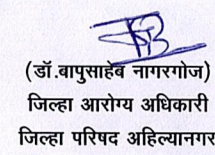 (डॉ.बापुसाहेब नागरगोज)
जिल्हा आरोग्य अधिकारी
जिल्हा परिषद अहिल्यानगर